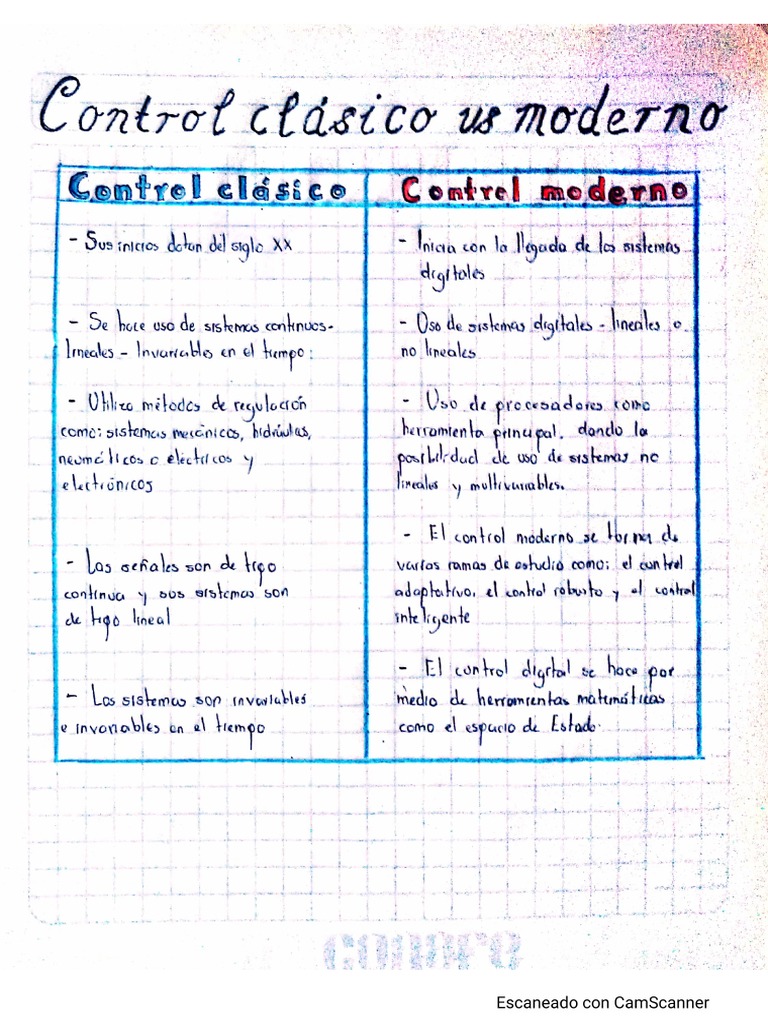 Control clásico vs moderno
Control clásico
- Sus inicios datan del siglo XX
- Se hace uso de sistemas continuos-
lineales - Invariables en el tiempo.
- Utiliza métodos de regulación
como: sistemas mecánicos, hidráulas,
neumáticos o eléctricos y
electrónicos
- Las señales son de tipo
continua y sus sistemas son
de tipo lineal
- Los sistemas son invariables
e invariables en el tiempo
Control moderno
- Inicia con la llegada de los sistemas
digitales
- Uso de sistemas digitales - lineales o
no lineales
- Uso de procesadores como
herramienta principal, dando la
posibilidad de uso de sistemas no
lineales y multivariables.
- El control moderno se forma de
varias ramas de estudio como: el control
adaptativo, el control robusto y el control
inteligente
- El control digital se hace por
medio de herramientas matemáticas
como el espacio de Estado.
Escaneado con CamScanner